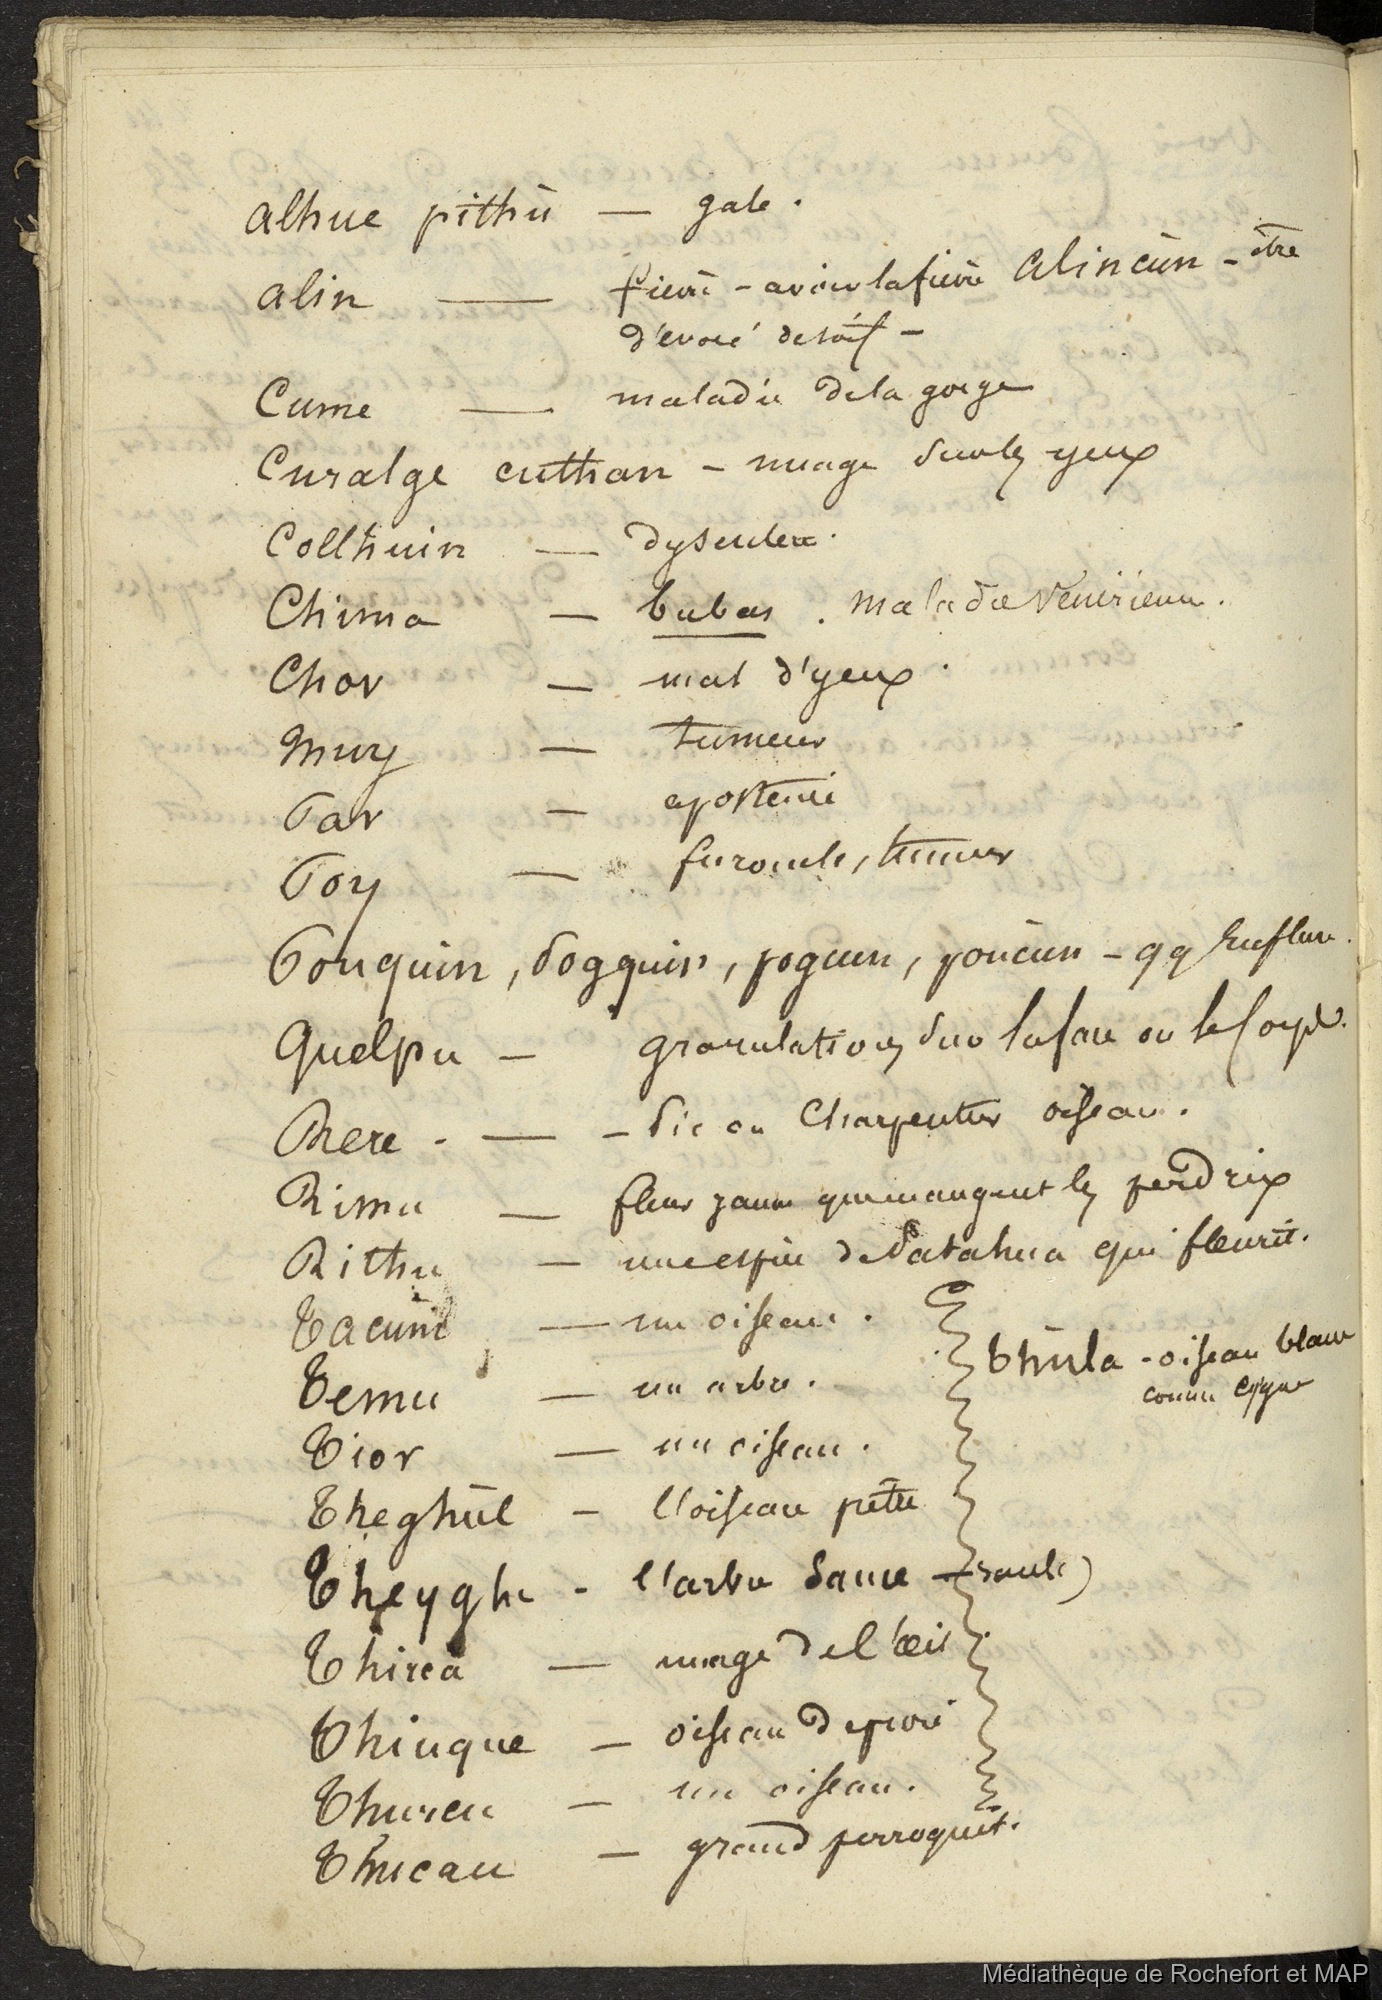 alhue pithü — gale.
alin — fievre - avoir la fievre alincün - être
d'evoré de soif -
Cume — maladie de la gorge
Curalge cuthan - nuage sur les yeux
Collhuin — dysenterie.
Chima — bubas. maladie Vénérienne.
Chov — mal d'yeux.
muy — tumeur
Pav — aposteme
Poy — furoncle, tumeur
Pouquin, Pogquin, poguin, poücun - qq Enflure.
Quelpu — granulations sur la face ou le Corps.
Rere. — - Pic ou Charpentier oiseau.
Rimu — fleur jaune que mangent les perdrix
Rithu — une espèce de Patahua qui fleurit.
Tacüni — un oiseau.
Thüla - oiseau blanc
comme cygne
Temu — un arbre.
Tior — un oiseau.
Theghül - l'oiseau petee
Theyghe - l'arbre Sauce - (saule)
Thirca — nuage de l'œil
Thiuque — oiseau de proie
Thureu — un oiseau.
Thücau — grand perroquet.
Médiathèque de Rochefort et MAP